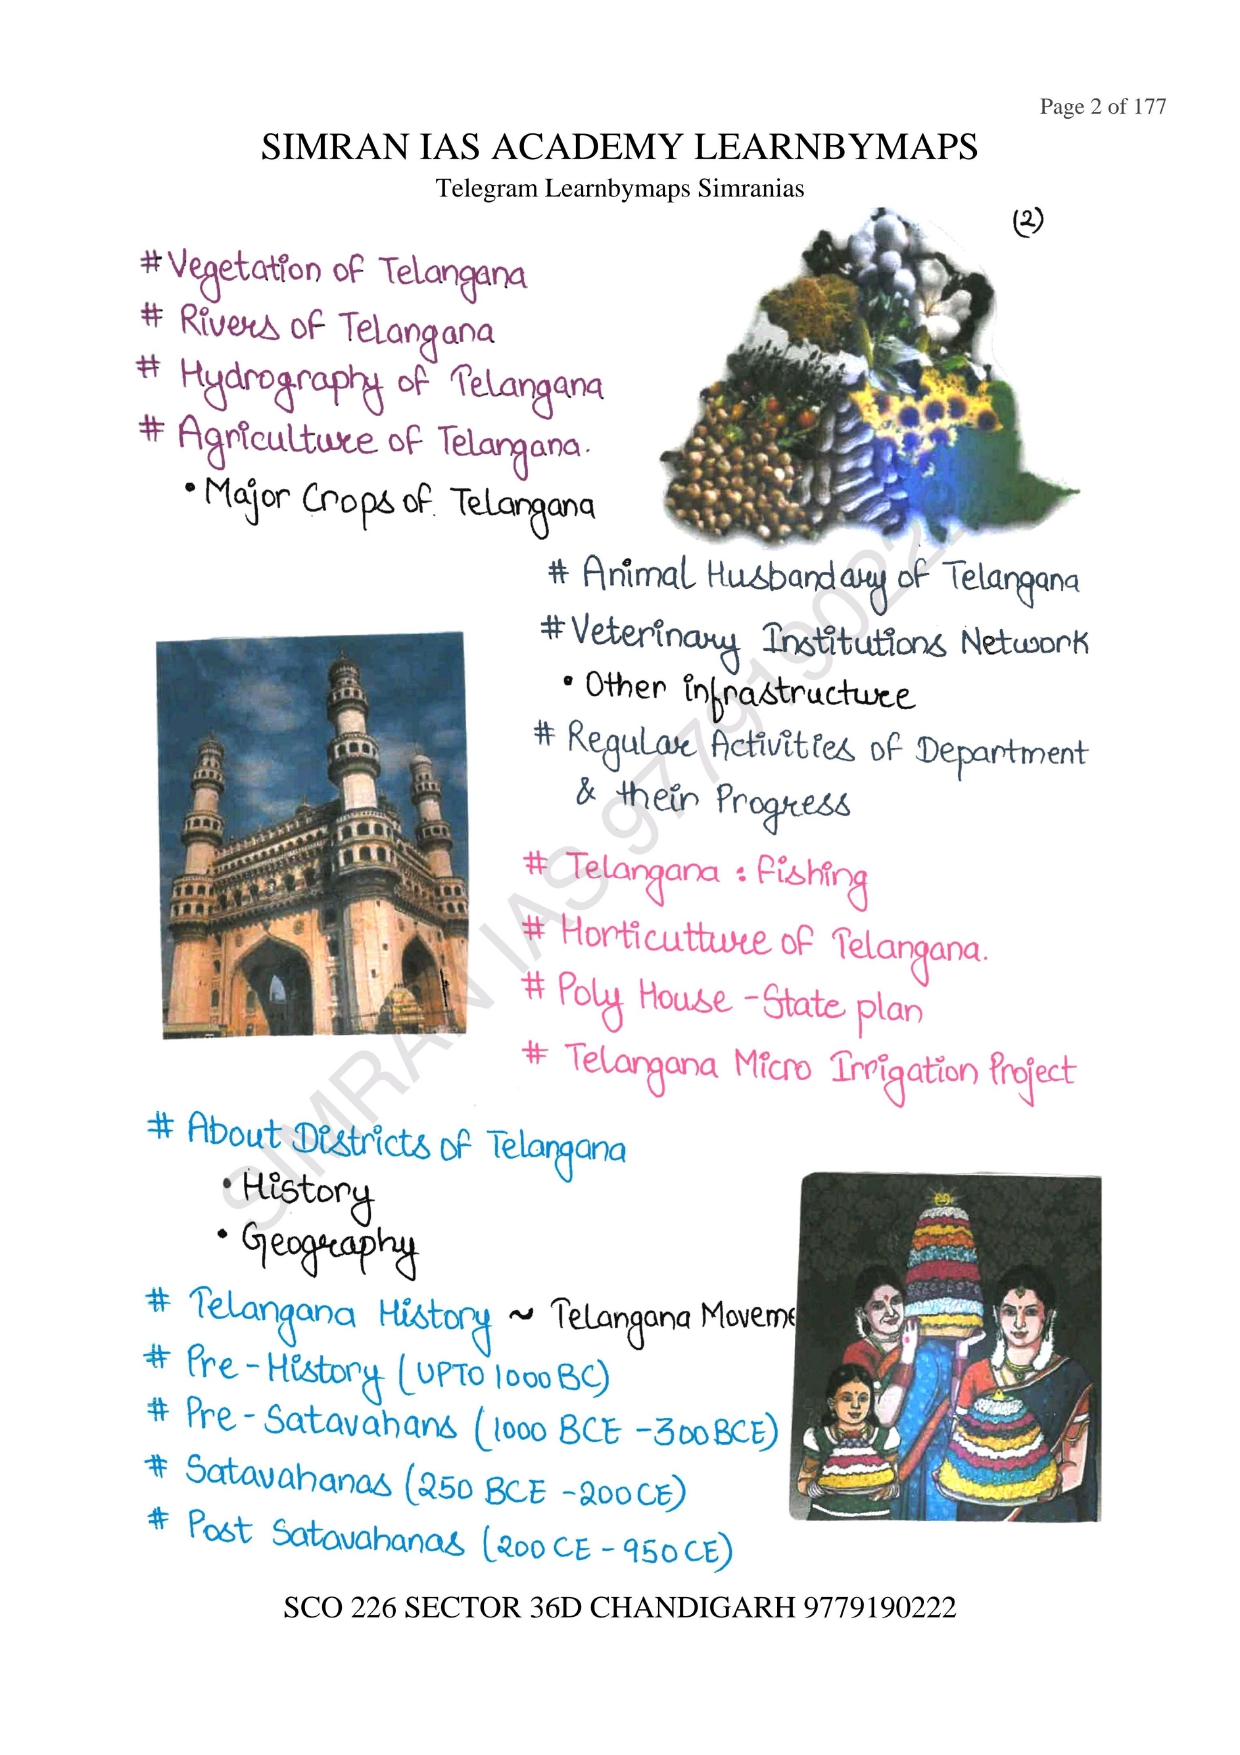 Page 2 of 177
SIMRAN IAS ACADEMY LEARNBYMAPS
Telegram Learnbymaps Simranias
(2)
# Vegetation of Telangana
# Rivers of Telangana
# Hydrography of Telangana
# Agriculture of Telangana.
• Major Crops of Telangana
# Animal Husbandary of Telangana
# Veterinary Institutions Network
• Other infrastructure
# Regular Activities of Department
& their Progress
# Telangana : Fishing
# Horticutture of Telangana.
# Poly House - State plan
# Telangana Micro Irrigation Project
# About Districts of Telangana
• History
• Geography
# Telangana History ~ Telangana Moveme
# Pre - History (UPTO 1000 BC)
# Pre - Satavahans (1000 BCE - 300 BCE)
# Satavahanas (250 BCE - 200 CE)
# Post Satavahanas (200 CE - 950 CE)
SCO 226 SECTOR 36D CHANDIGARH 9779190222
SIMRAN IAS 977919022